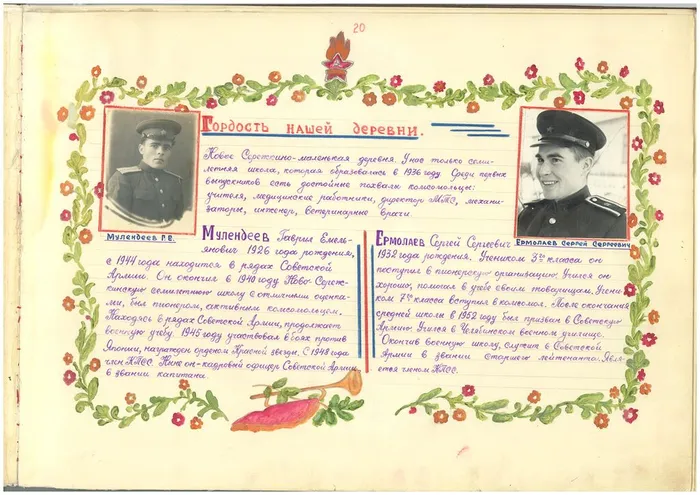 20
Гордость нашей деревни.
Ново Серёжкино-маленькая деревня. У нас только семи-
летняя школа, которая образовалась в 1936 году. Среди первых
выпускников есть достойные похвалы комсомольцы:
учителя, медицинские работники, директор МТС, механи-
заторы, инженер, ветеринарные врачи.
Мулендеев Г.Е.
Ермолаев Сергей Сергеевич
Мулендеев Гаврил Емель-
янович 1926 года рождения,
с 1944 года находится в рядах Советской
Армии. Он окончил в 1940 году Ново-Сереж-
кинскую семилетнюю школу с отличными оценка-
ми, был пионером, активным комсомольцем.
Находясь в рядах Советской Армии, продолжает
военную учебу. 1945 году участвовал в боях против
Японии, награжден орденом Красной звезды. С 1948 года
член КПСС. Ныне он-кадровый офицер Советской Армии
в звании капитана.
Ермолаев Сергей Сергеевич
1932 года рождения. Учеником 3го класса он
поступил в пионерскую организацию. Учился он
хорошо, помогал в учебе своим товарищам. Учени-
ком 7го класса вступил в комсомол. После окончания
средней школы в 1952 году был призван в Советскую
Армию. Учился в Челябинском военном училище.
Окончив военную школу, служит в Советской
Армии в звании старшего лейтенанта. Явля-
ется членом КПСС.